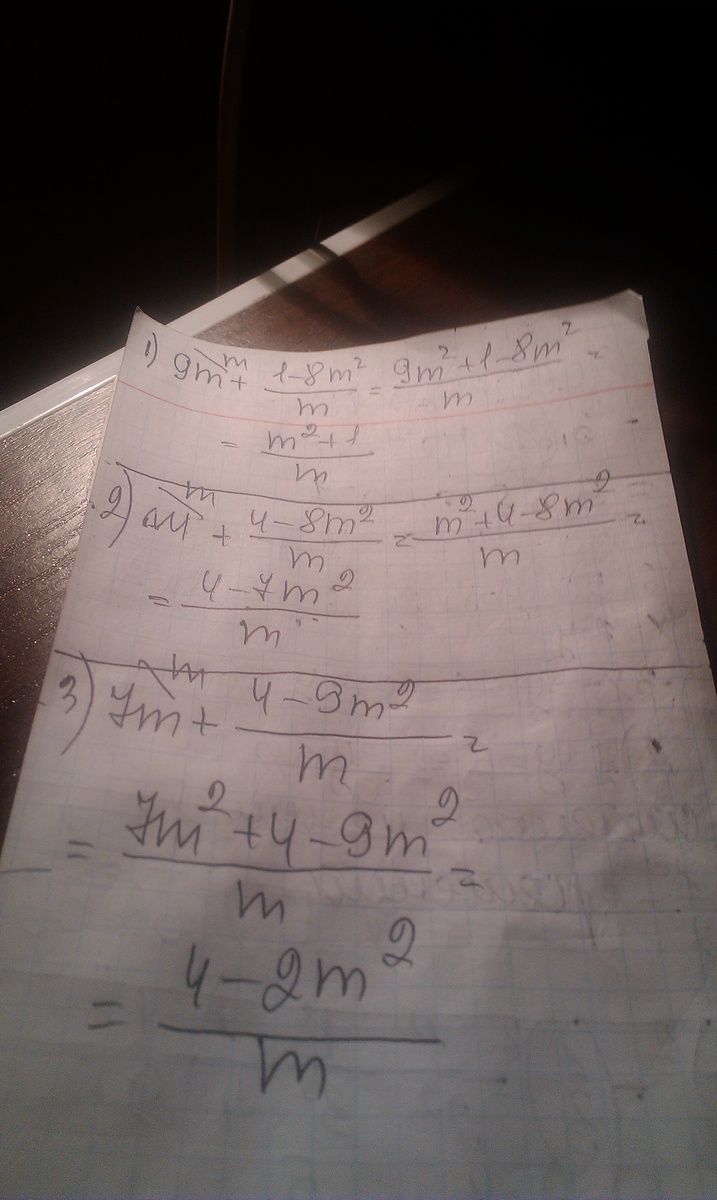 1) 9m\m + (1-8m²)/m = (9m²+1-8m²)/m =
= (m²+1)/m
2) m\m + (4-8m²)/m = (m²+4-8m²)/m =
= (4-7m²)/m
3) 7m\m + (4-9m²)/m =
= (7m²+4-9m²)/m =
= (4-2m²)/m